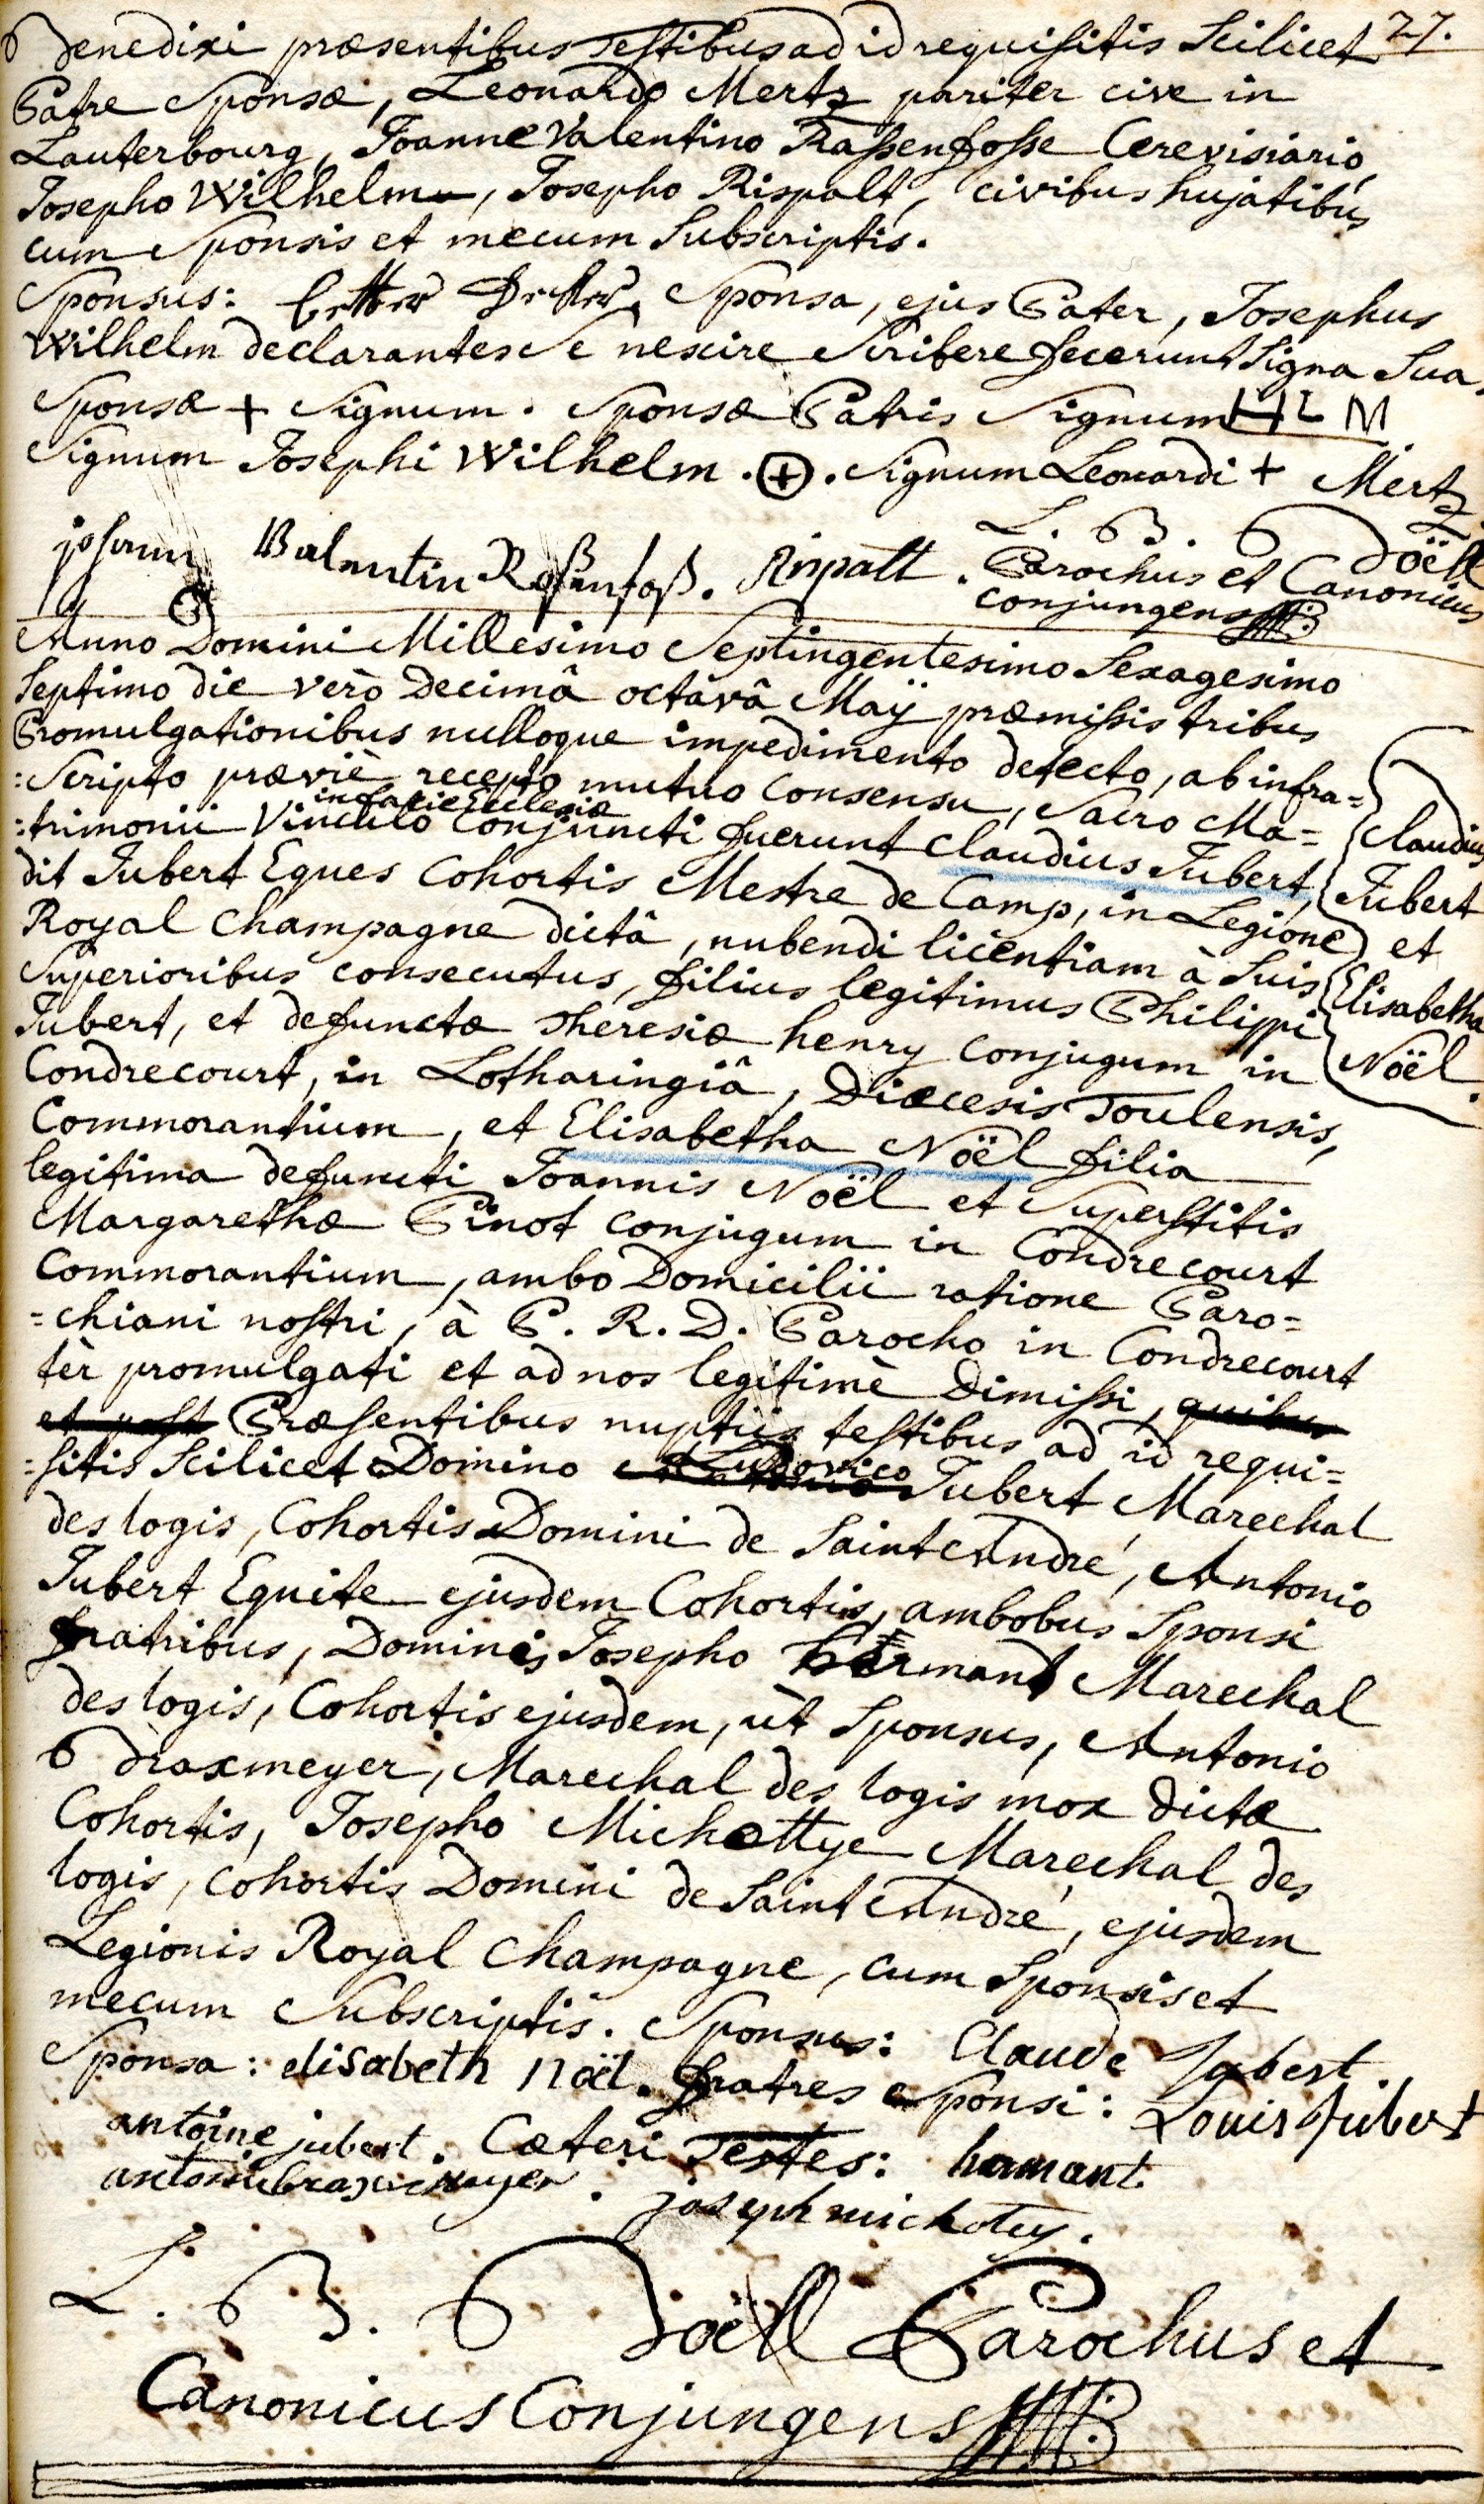 Benedixi præsentibus Testibus ad id requisitis Scilicet 27.
Patre Sponsæ, Leonardo Mertz pariter cive in
Lauterbourg, Joanne Valentino Rassenfosse Cerevisiario,
Josepho Wilhelm, Josepho Rispalt, civibus hujatibus
cum Sponsis et mecum Subscriptis.
Sponsus: Sponsa, ejus Pater, Josephus
Wilhelm declarantes se nescire Scribere fecerunt Signa Sua,
Sponsæ + Signum. Sponsæ Patris Signum HL M
Signum Josephi Wilhelm. (+). Signum Leonardi + Mertz.
johann Valentin Rassenfoß. Rispalt. L. B. Doëll
Parochus et Canonicus
conjungens
Anno Domini Millesimo Septingentesimo Sexagesimo
Septimo die verò Decimâ octavâ Maÿ præmissis tribus
Promulgationibus nulloque impedimento detecto, ab infra=
:Scripto præviè recepto mutuo Consensu, Sacro Ma=
in facie Ecclesiæ
:trimonii Vinculo Conjuncti fuerunt Claudius Jubert,
dit Jubert Eques Cohortis Mestre de Camp, in Legione
Royal Champagne dictâ, nubendi licentiam à Suis
Superioribus consecutus, filius legitimus Philippi
Jubert, et defunctæ Theresiæ henry conjugum in
Condrecourt, in Lotharingiâ, Diœcesis Toulensis,
Commorantium, et Elisabetha Noël filia
legitima defuncti Joannis Noël et Superstitis
Margarethæ Pinot conjugum in Condrecourt
Commorantium, ambo Domicilii ratione Paro=
=chiani nostri, à P. R. D. Parocho in Condrecourt
tèr promulgati et ad nos legitimè Dimissi, quibus
et post Præsentibus nuptiis testibus ad id requi=
=sitis Scilicet Domino Ludovico Jubert Marechal
des logis, Cohortis Domini de Saint André, Antonio
Jubert Equite ejusdem Cohortis, ambobus Sponsi
fratribus, Dominis Josepho hermand Marechal
des logis, Cohortis ejusdem, ùt Sponsus, Antonio
Braxmeyer, Marechal des logis mox dictæ
Cohortis, Josepho Michottye Marechal des
logis, Cohortis Domini de Saint André, ejusdem
Legionis Royal Champagne, cum Sponsis et
mecum Subscriptis. Sponsus: Claude Jubert.
Sponsa: elisabeth noel. fratres Sponsi: Louis Jubert
antoine jubert. Cæteri Testes: hermant.
antoni braxmeyer. joseph michotey.
L. B. Doëll Parochus et
Canonicus Conjungens
Claudius
Jubert
et
Elisabetha
Noël.